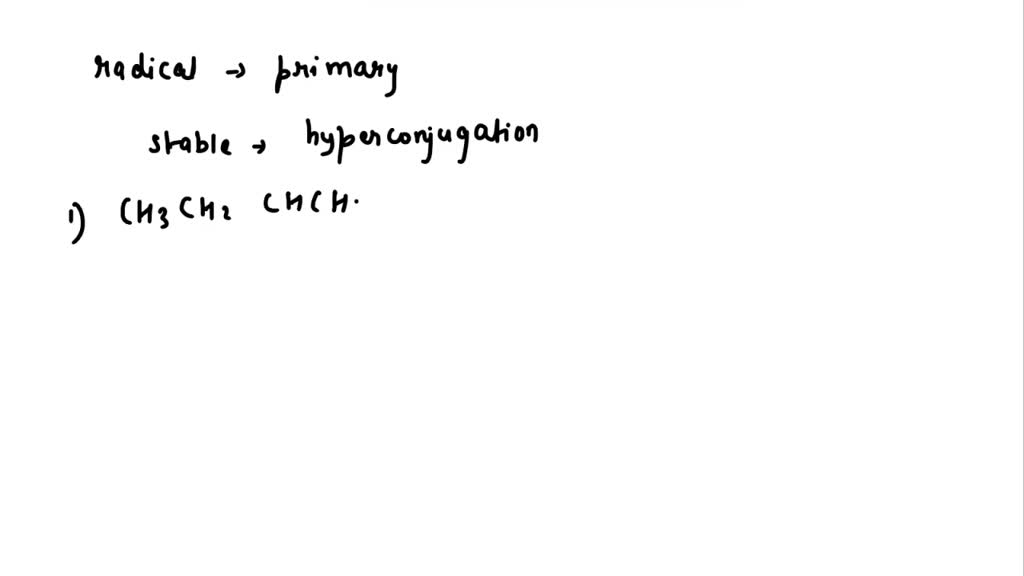 radical → primary
stable → hyperconjugation
1) CH3CH2 CHCH.